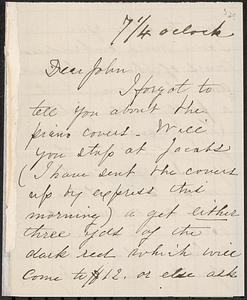 7¼ oclock
Dear John
I forgot to
tell you about the
piano covers. Will
you stop at Jacobs
(I have sent the covers
up by express this
morning) & get either
three yds of the
dark red which will
come to $12. or else ask